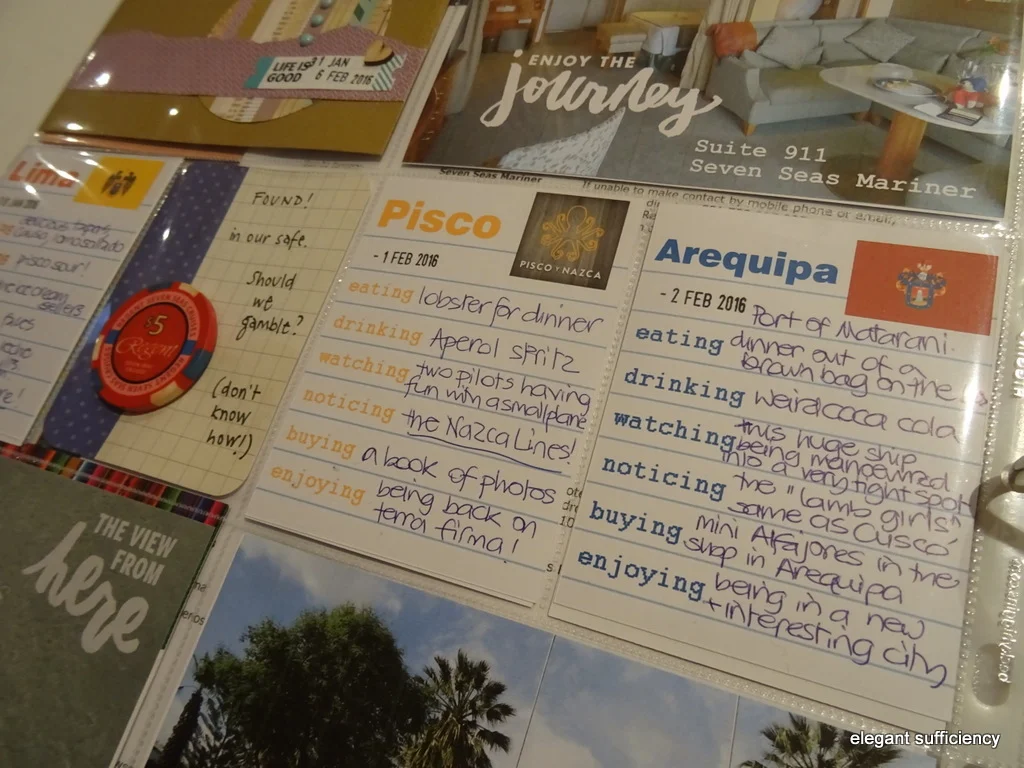 LIFE IS
GOOD
31 JAN
6 FEB 2016
ENJOY THE
journey
Suite 911
Seven Seas Mariner
Seven Seas Mariner
If unable to make contact by mobile phone or email,
Lima
pisco sour!
FOUND!
in our safe.
Should
we
gamble?
(don't
know
how!)
$5
Regent
Pisco
- 1 FEB 2016
PISCO Y NAZCA
eating lobster for dinner
drinking Aperol spritz
watching two pilots having
fun with a small plane
noticing the Nazca Lines!
buying a book of photos
enjoying being back on
terra firma!
Arequipa
- 2 FEB 2016 Port of Matarani.
eating dinner out of a
brown bag on the
drinking weird coca cola
watching this huge ship
being manoeuvred
into a very tight spot
noticing the "lamb girls"
same as Cusco
buying mini Alfajores in the
shop in Arequipa
enjoying being in a new
+ interesting city
THE VIEW
FROM
here
elegant sufficiency